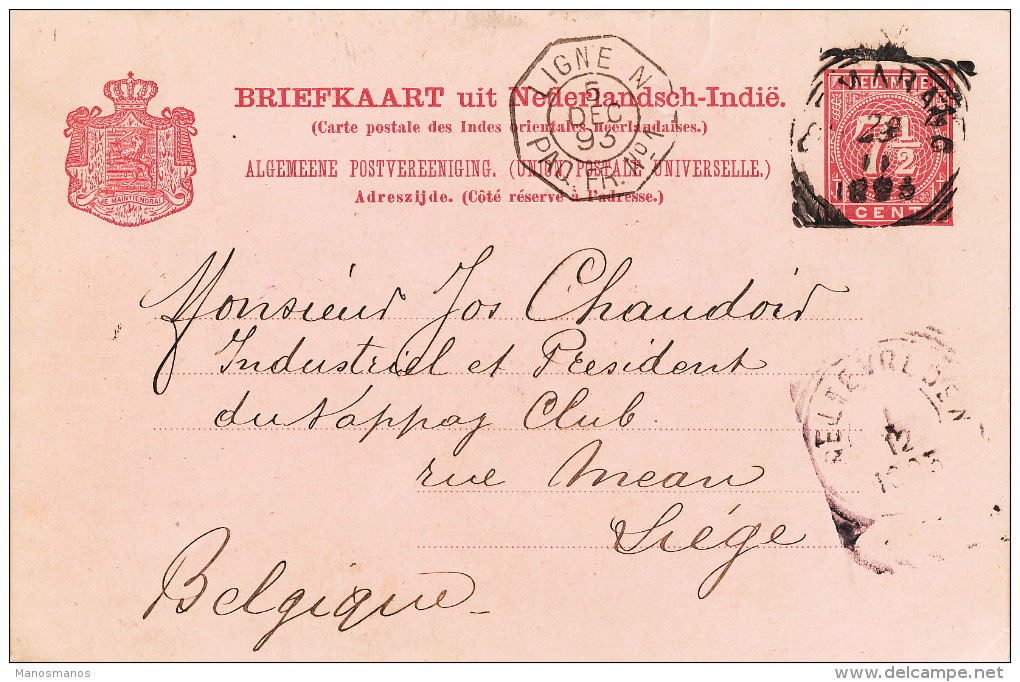 BRIEFKAART uit Nederlandsch-Indië.
(Carte postale des Indes orientales néerlandaises.)
ALGEMEENE POSTVEREENIGING. (UNION POSTALE UNIVERSELLE.)
Adreszijde. (Côté réservé à l'adresse.)
JE MAINTIENDRAI
LIGNE N
5
DEC
93
PAQ. FR. No
7 1/2
CENT
29
11
1893
Monsieur Jos Chaudoir
Industriel et President
du Kappay Club
rue Mean
Liége
Belgique
WELTEVREDEN
12
Manosmanos
delcampe.net